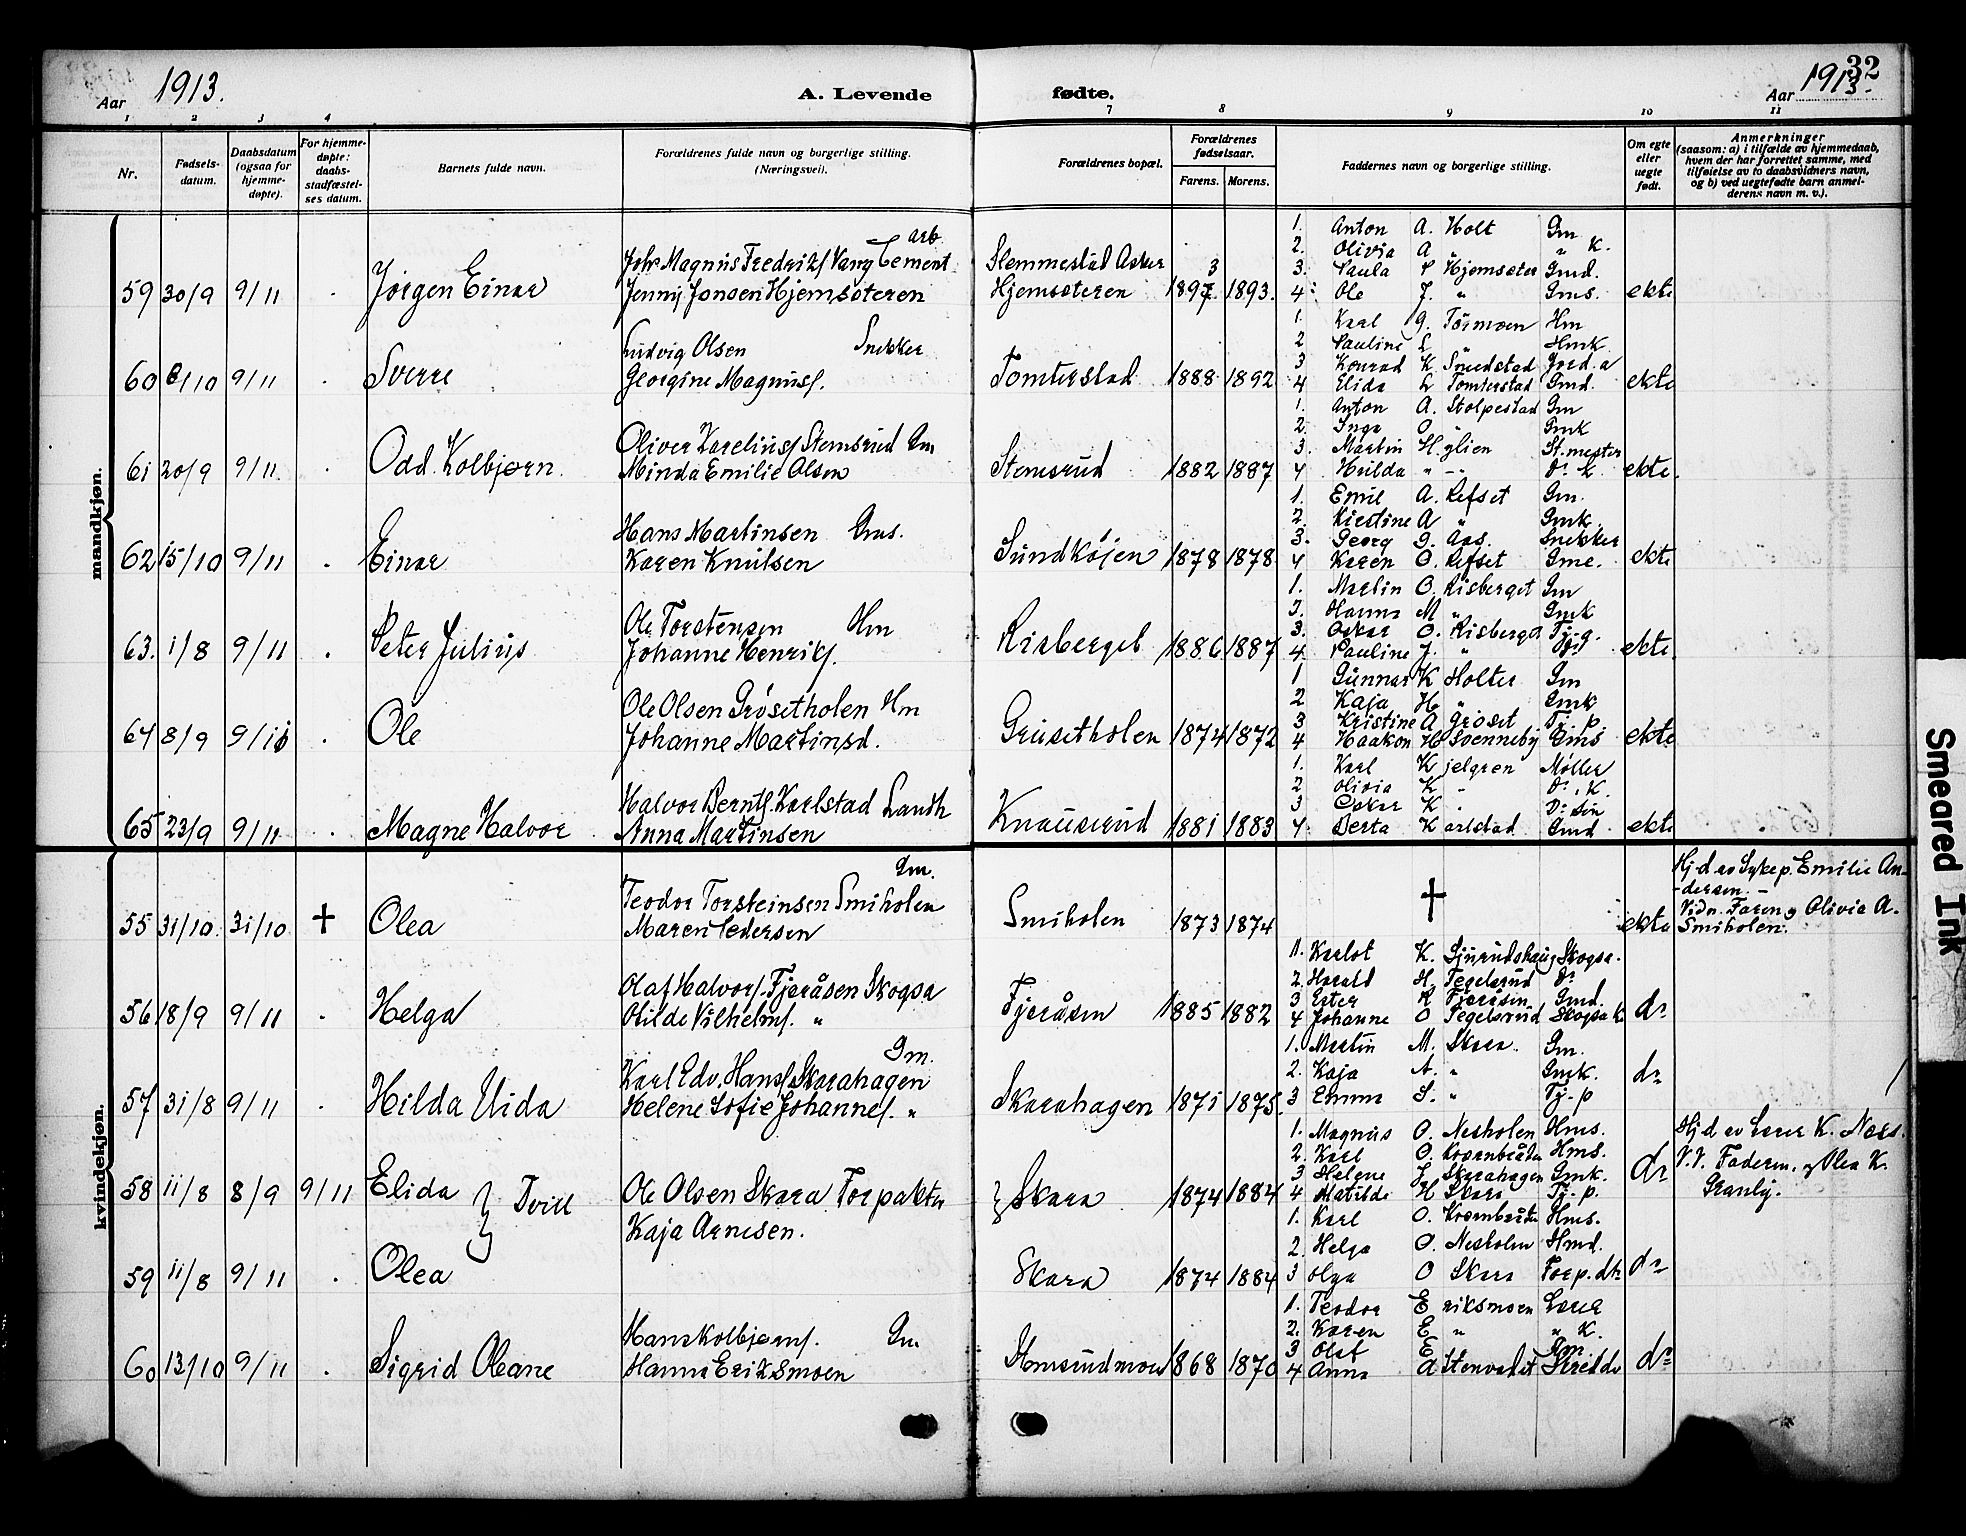 32
Aar 1913. A. Levende fødte. Aar 1913.
1 2 3 4 7 8 9 10 11
Nr.
Fødsels-
datum.
Daabsdatum
(ogsaa for
hjemme-
døpte).
For hjemme-
døpte:
daabs-
stadfæstel-
ses datum.
Barnets fulde navn.
Forældrenes fulde navn og borgerlige stilling.
(Næringsvei).
Forældrenes bopæl.
Forældrenes
fødselsaar.
Farens. Morens.
Faddernes navn og borgerlige stilling.
Om egte
eller
uegte
født.
Anmerkninger
(saasom: a) i tilfælde av hjemmedaab,
hvem der har forrettet samme, med
tilføielse av to daabsvidners navn,
og b) ved uegtefødte barn anmel-
derens navn m. v.).
mandkjøn.
59 30/9 9/11 . Jørgen Einar
arb.
Johs Magnus Fredriks/ Vang Cement
Jenny Jonsen Hjemsæteren
Slemmestad Asker
Hjemsæteren 1893 1893.
1. Anton A. Holt Gm
2. Olivia A " " K.
3. Paula P Hjemsæter Gmd.
4. Ole J. " Gms. ekte
60 8/10 9/11 . Sverre
Ludvig Olsen Snekker
Georgine Magnus/.
Tomterstad 1888 1892
1. Karl G. Tørmoen Hm
2 Pauline L " Hmk
3 Konrad K Smedstad Jord.a
4 Elida L Tomterstad Gmd. ekte
61 20/9 9/11 . Odd Kolbjørn
Oliver Karelius/ Stemsrud Gm
Minda Emilie Olsen
Stemsrud 1882 1887
1. Anton A. Stolpestad Gm
2. Inga O. " Gmk
3. Martin Hylien St.mester
4 Hulda " - " - Do k. ekte.
62 15/10 9/11 . Einar
Hans Martinsen Gms.
Karen Knutsen
Sundkøien 1878 1878
1. Emil A. Refset Gm.
2. Kristine A " Gmk.
3. Georg G. Aas. Snekker
4 Karen O. Refset Gme. ekte
63. 1/8 9/11 . Peter Julius
Ole Torstensen Hm
Johanne Henriks/.
Risberget 1886 1887
1. Martin O. Risberget Gm
2. Hanna M " Gmk
3. Oskar O. Risberget Tj.g.
4. Pauline J. " ekte.
64 8/9 9/11 . Ole
Ole Olsen Grøsetholen Hm
Johanne Martinsd.
Grusetholen 1874 1872
1 Gunnar K Holter Gm
2 Kaja H " Gmk
3 Kristine A Grøset Tj. p.
4 Haakon H Svenneby Gms ekte
65 23/9 9/11 . Magne Halvor
Halvor Bernts/. Karlstad Landh
Anna Martinsen
Knausrud 1881 1883
1. Karl Kjelgren Møller
2 Olivia K " Do. K.
3 Oskar K . Do. Søn
4. Berta Karlstad Gmd ekte
kvindekjøn.
55 31/10 31/10 † Olea
Gm.
Teodor Torsteinsen Smiholen
Maren Pedersen
Smiholen 1873 1874 † ekte
Hj.d av Sykep. Emilie An-
-dersen. -
Vidn. Faren og Olivia A.
Smiholen.
56 18/9 9/11 . Helga
Olaf Halvors/. Fjeråsen Skogsa
Otilde Vilhelms/. "
Fjeråsen 1885 1882
1. Karlot K. Sjurudshaug Skogsa.
2 Harald H. Tegelsrud Do
3 Ester K Fjeråsen Gmd.
4 Johanne O Tegelsrud Skogsa k. do
57 31/8 9/11 . Hilda Uida
Gm.
Karl Edv. Hans/ Skarahagen
Helene Sofie Johannes/. "
Skarahagen 1871 1875.
1. Martin M. Skara Gm.
2. Kaja A. " Gmk.
3 Emma S. " Tj. p do
58 11/8 8/9 9/11 Elida } Tvill
Ole Olsen Skara Forpakter
Kaja Arnesen.
Skara 1874 1884
1. Magnus O. Nesholen Hms.
2. Karl O. Kvernbråten Hms.
3 Helene J. Skarahagen Gmk.
4 Matilde H Skara Tj. p. do
Hj.d av Lærer K. Næss.
V.V. Faderen. og Olea K.
Granly.
59 11/8 9/11 . Olea
Skara 1874 1884
1. Karl O. Kvernbråte Hms.
2. Helga O. Nesholen Hmd.
3 Olga O Skara Forp. dtr do
60 13/10 9/11 . Sigrid Oleane
Hans Kolbjørns/. Gm
Hanna Eriksmoen
Stemsrudmoen 1868 1870
1. Teodor Eriksmoen Lærer
2. Karen E " " K.
3 Olaf E Gm.
4 Anna A Stenvadet do
Smeared Ink